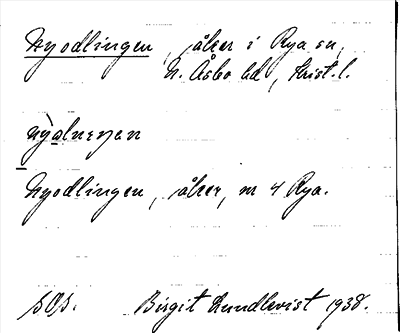 Nyodlingen, åker i Rya sn,
N. Åsbo hd, Krist. l.
nỳalneŋen
Nyodlingen, åker, nr 4 Rya.
SOS. Birgit Lundkvist 1938.